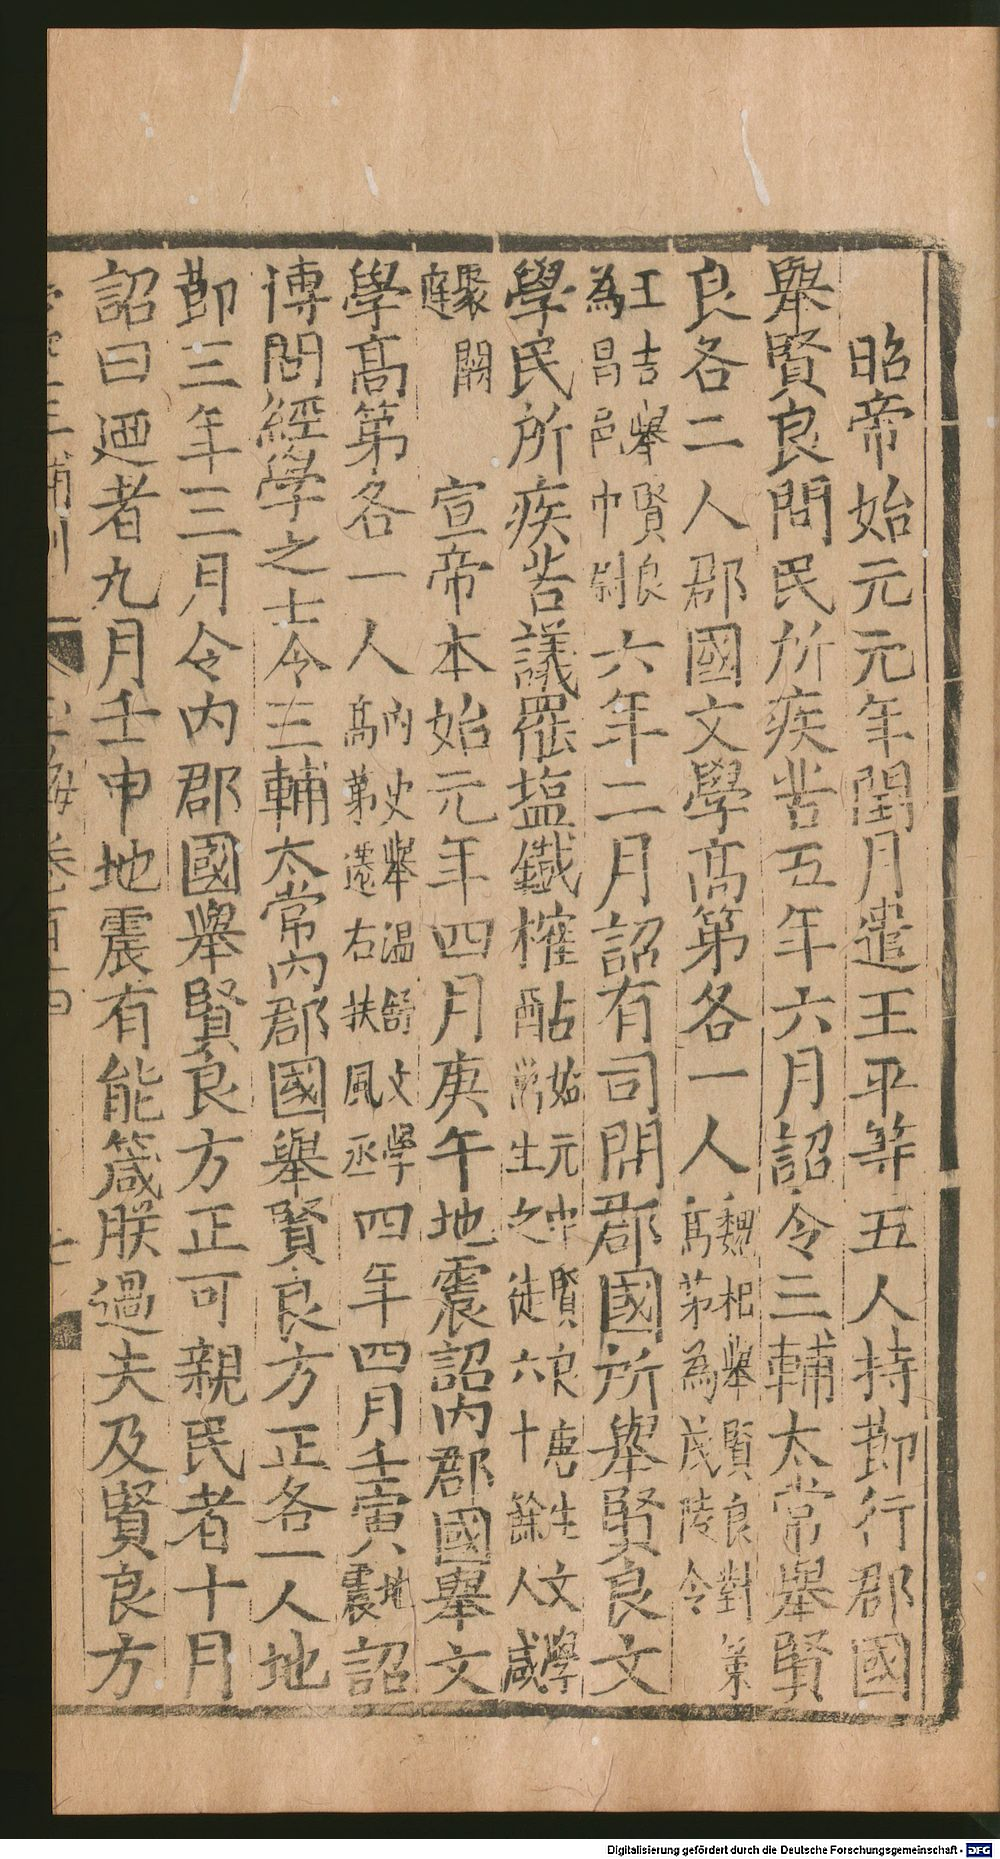 昭帝始元元年閏月遣王平等五人持節行郡國
舉賢良問民所疾苦五年六月詔令三輔太常舉賢
良各二人郡國文學高第各一人魏相舉賢良對策
高第為茂陵令
王吉舉賢良
為昌邑中尉六年二月詔有司問郡國所舉賢良文
學民所疾苦議罷塩鐵榷酤始元中賢良唐生文學
生之徒六十餘人咸
聚闕
庭宣帝本始元年四月庚午地震詔內郡國舉文
學高第各一人內史舉温舒文學
高第遷右扶風丞四年四月壬寅地震詔
傳問經學之士令三輔太常內郡國舉賢良方正各一人地
節三年三月令內郡國舉賢良方正可親民者十月
詔曰廼者九月壬申地震有能箴朕過失及賢良方
Digitalisierung gefördert durch die Deutsche Forschungsgemeinschaft - DFG